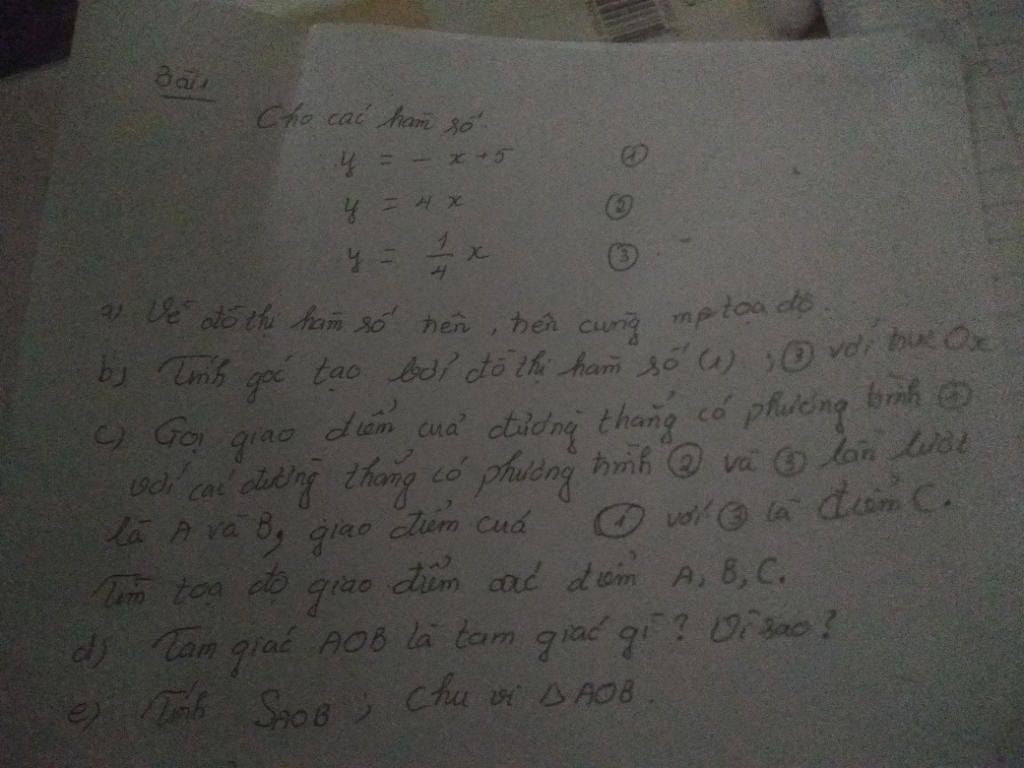 Bài 1
Cho các hàm số
y = - x + 5 ①
y = 4 x ②
y = 1/4 x ③
a) Vẽ đồ thị hàm số trên, trên cùng mp tọa độ.
b) Tính góc tạo bởi đồ thị hàm số (1) ; ③ với trục Ox
c) Gọi giao điểm của đường thẳng có phương trình ①
với các đường thẳng có phương trình ② và ③ lần lượt
là A và B, giao điểm của ① với ③ là điểm C.
Tìm tọa độ giao điểm các điểm A, B, C.
d) Tam giác AOB là tam giác gì? Vì sao?
e) Tính SAOB ; Chu vi △AOB.